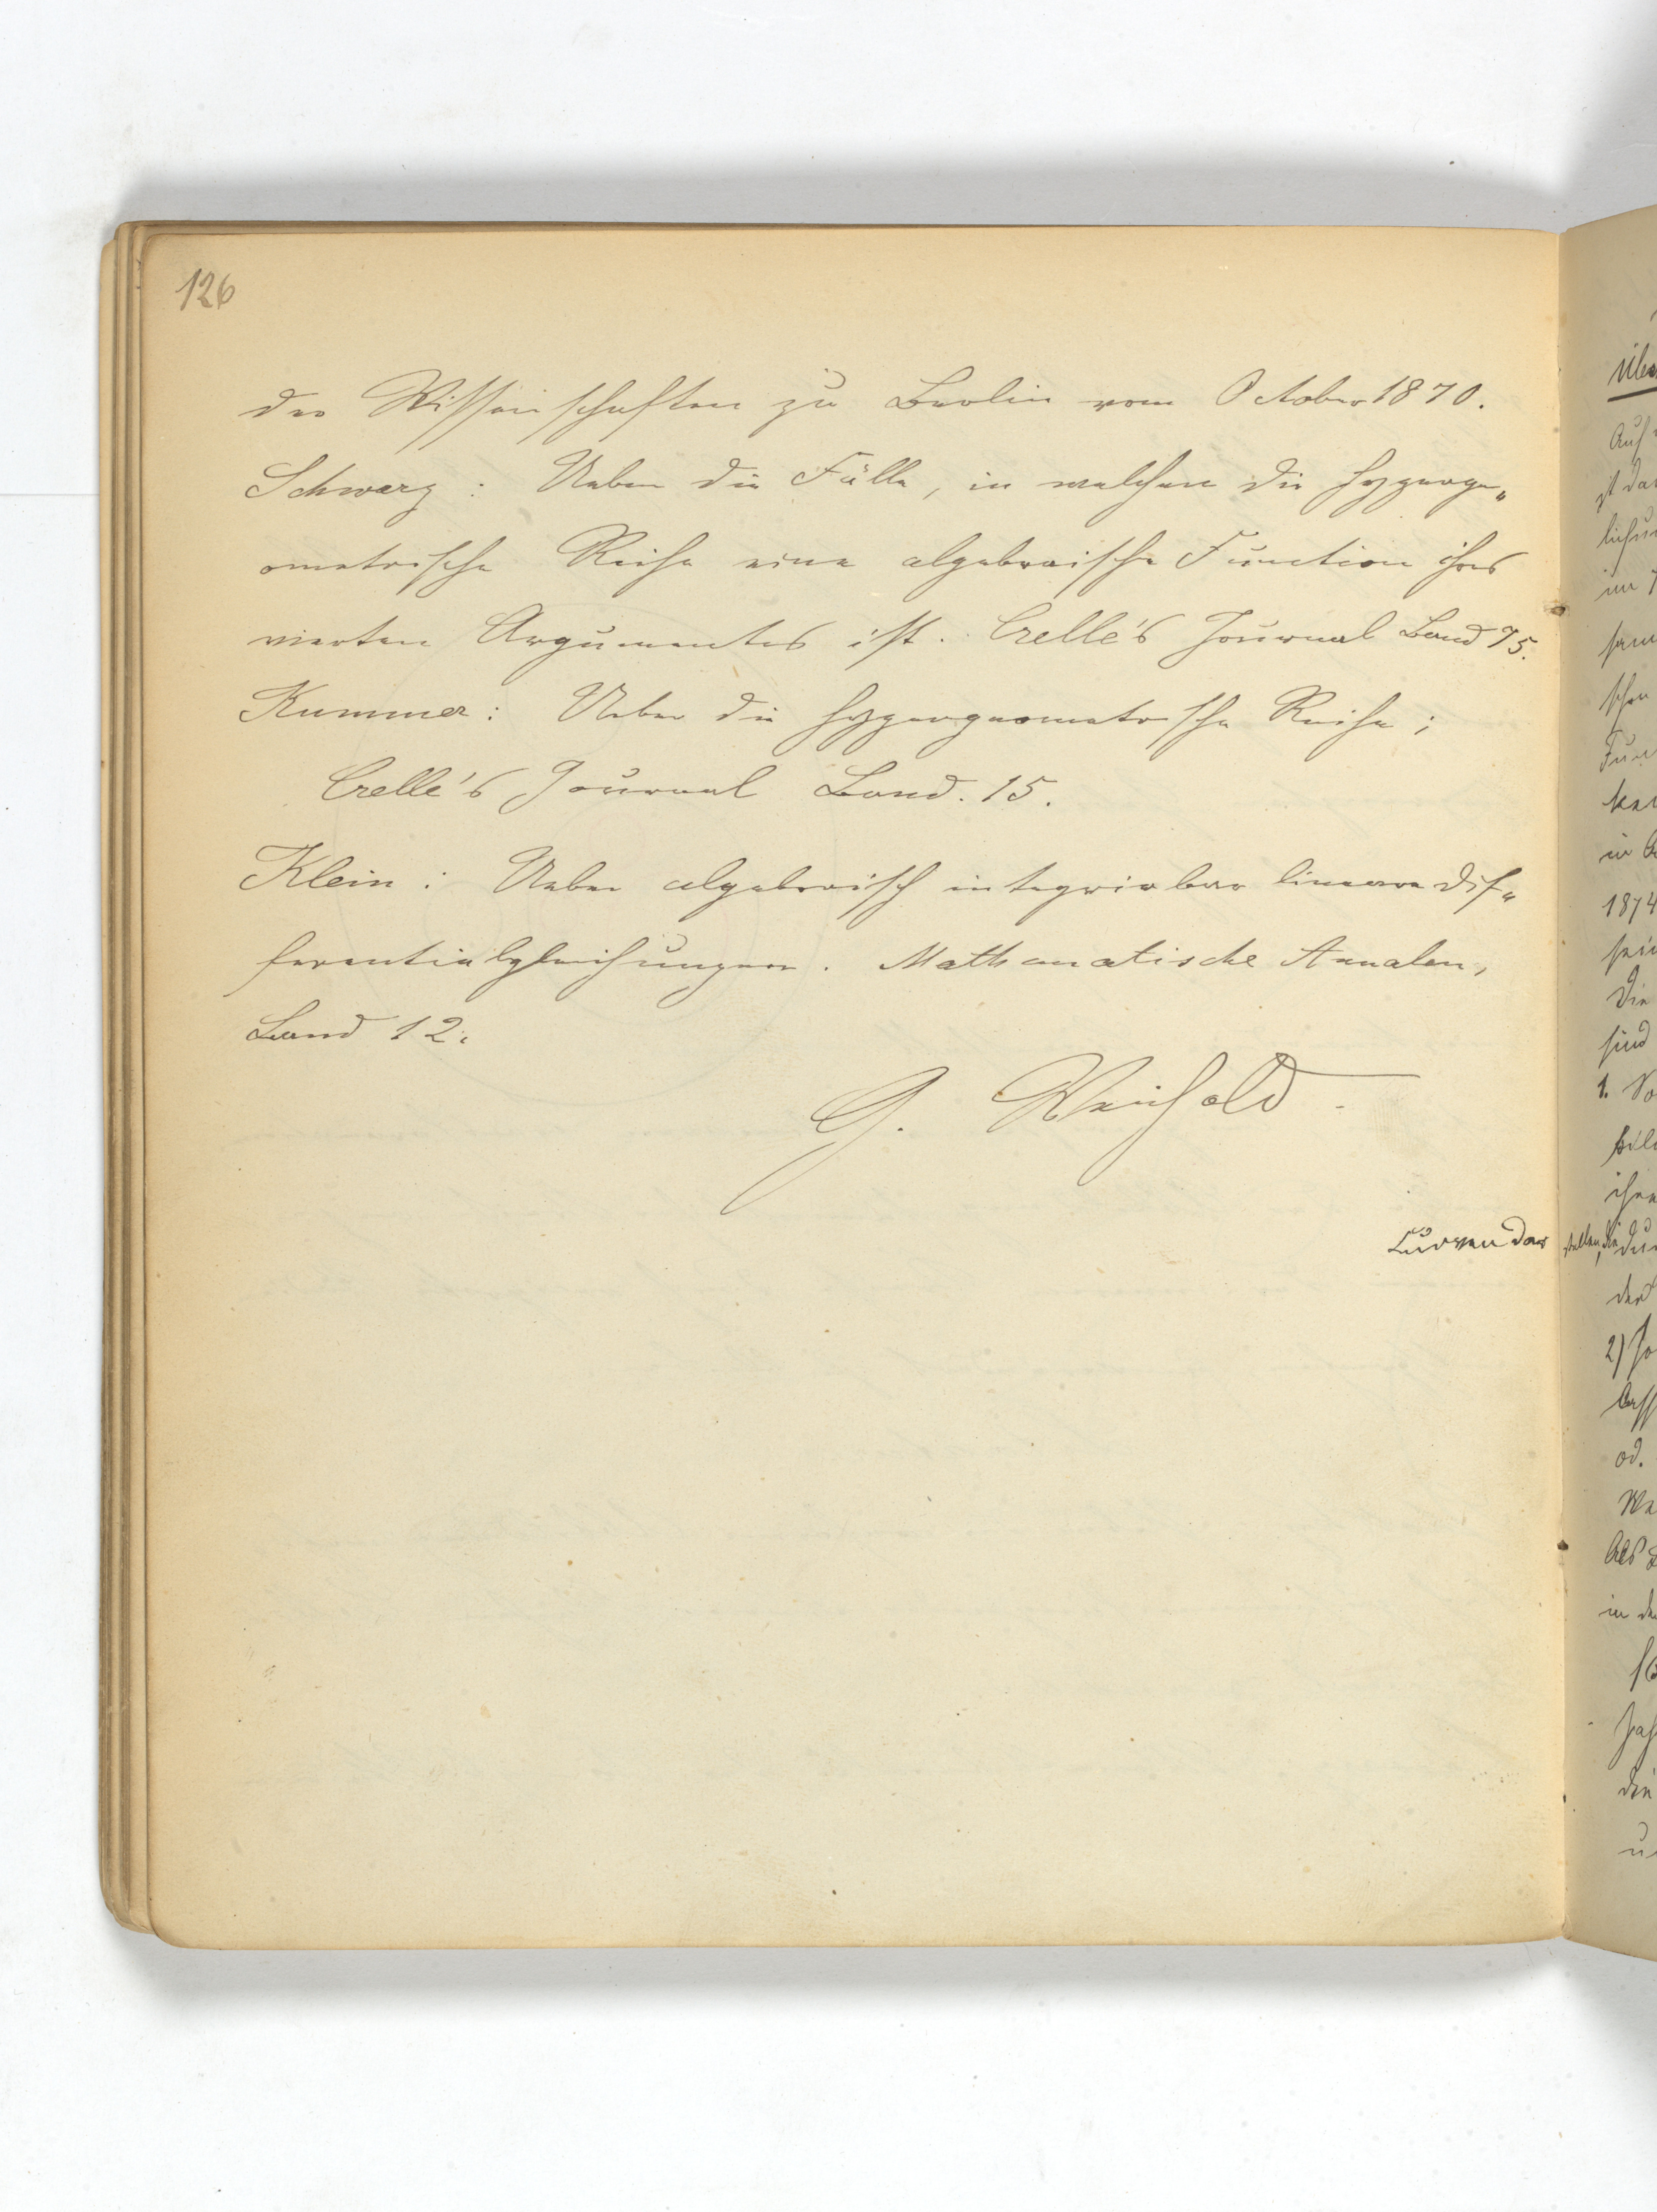 126
der Wissenschaften zu Berlin vom October 1870.
Schwarz: Ueber die Fälle, in welchen die hyperge„
ometrische Reihe eine algebraische Function ihres
vierten Argumentes ist. Crelle's Journal Band 75.
Kummer: Ueber die hypergeometrische Reihe;
Crelle's Journal Band. 15.
Klein: Ueber algebraisch integrirbare lineare Dif„
ferentialgleichungen. Mathematische Annalen,
Band 12.
G. Weichold
Curven dar
stellen, die
Auf
ist das
im
schon
in
1874
sein
Die
sind
1.
der
2)
od.
in
die